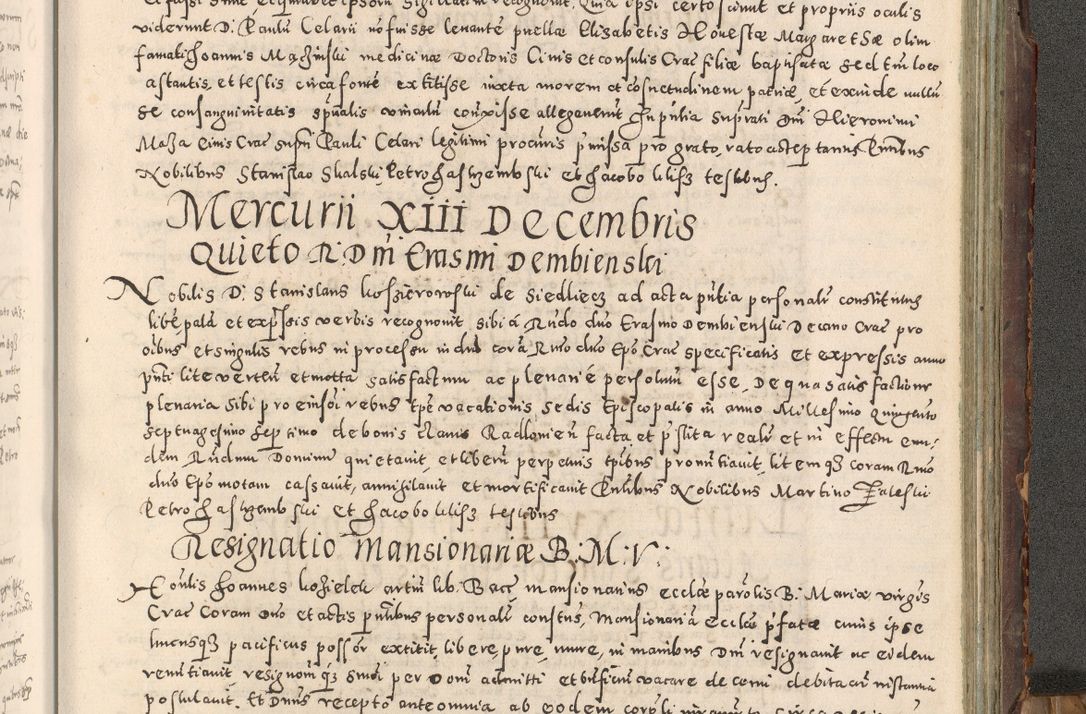 viderunt D. Paulu Celarii no fuisse levante puellæ Elisabetis Honestæ Margarethæ olim
famati Joannis Maczinski medicinæ Doctoris Civis et consulis Crac filiæ baptisatæ sed tm loco
astantis, et testis circa fonte extitisse iuxta morem et cosuetudinem patriæ, et exinde nullu
se consanguinitatis spualis vinculu contraxisse allegaverut In putia suprati Dni Hieronimi
Maza Civis Crac supn Pauli Celari legitimi procuris pmissa pro grato, rato acceptantis Pntibus
Nobilibus Stanislao Skalski, Petro Jastzembski et Jacobo Kilisz testibus.
Mercurii XIII Decembris
Quieto R. Dni Erasmi Dembienski
Nobilis D. Stanislaus Koszierowski de Siedliecz ad acta putia personalr constitutus
libe palā et expssis verbis recognovit sibi á Rndo dno Erasmo Dembienski Decano Crac pro
oibus et singulis rebus in processu in dnd corā Rmo dno Epo Crac specificatis et expressis anno
pnti lite vertēti et motta satisfactum ac plenariē persolutū esse, De qua satisfactione
plenaria sibi pro einsdi rebus tpe vacationis sedis Episcopalis in anno Millesimo Quingento
septuagesimo septimo de bonis clavis Radloviēn facta et pstita realr et in effectu eun-
dem Rndum Dominum quietavit, et liberū perpetuis tpibus pronūtiavit, litemq3 coram Rmo
dno Epo motam cassavit, annihilavit et mortificavit Pntibus Nobilibus Martino Zaleski
Petro Jastzembski et Jacobo Kilisz testibus
Resignatio Mansionariæ B: M: V:
Honlis Joannes Kozielek artiū lib: Bacc mansionarius ecclæ parolis B: Mariæ virgis
Crac Coram Dno et actis pntibus personalr constus, Mansionaria ecclæ pfatæ cuius ipse
hucusq3 pacificus possōr extitit libere pure, mere, in manibus Dni resignavit ac eidem
renūtiavit resignōnmq3 suā per Dom admitti et bnficiū vacare decerni debita cū instantia
postulavit. Et Dnus recepto ante omnia ab eodem